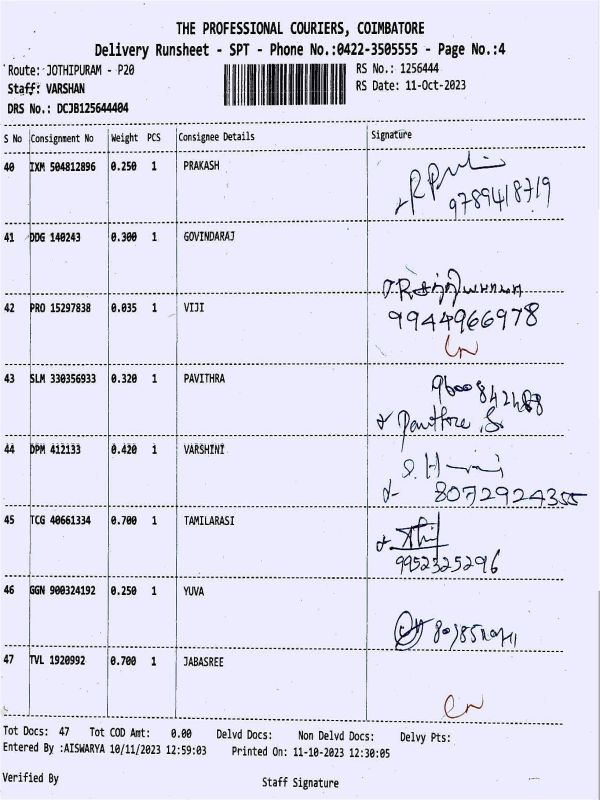 THE PROFESSIONAL COURIERS, COIMBATORE
Delivery Runsheet - SPT - Phone No.:0422-3505555 - Page No.:4
Route: JOTHIPURAM - P20
RS No.: 1256444
Staff: VARSHAN
RS Date: 11-Oct-2023
DRS No.: DCJB125644404
S No Consignment No Weight PCS Consignee Details Signature
40 IXM 504812896 0.250 1 PRAKASH
9789418719
41 DDG 140243 0.300 1 GOVINDARAJ
42 PRO 15297838 0.035 1 VIJI
9944966978
43 SLM 330356933 0.320 1 PAVITHRA
44 DPM 412133 0.420 1 VARSHINI
8072924355
45 TCG 40661334 0.700 1 TAMILARASI
9952325296
46 GGN 900324192 0.250 1 YUVA
47 TVL 1920992 0.700 1 JABASREE
Tot Docs: 47 Tot COD Amt: 0.00 Delvd Docs: Non Delvd Docs: Delvy Pts:
Entered By :AISWARYA 10/11/2023 12:59:03 Printed On: 11-10-2023 12:30:05
Verified By
Staff Signature